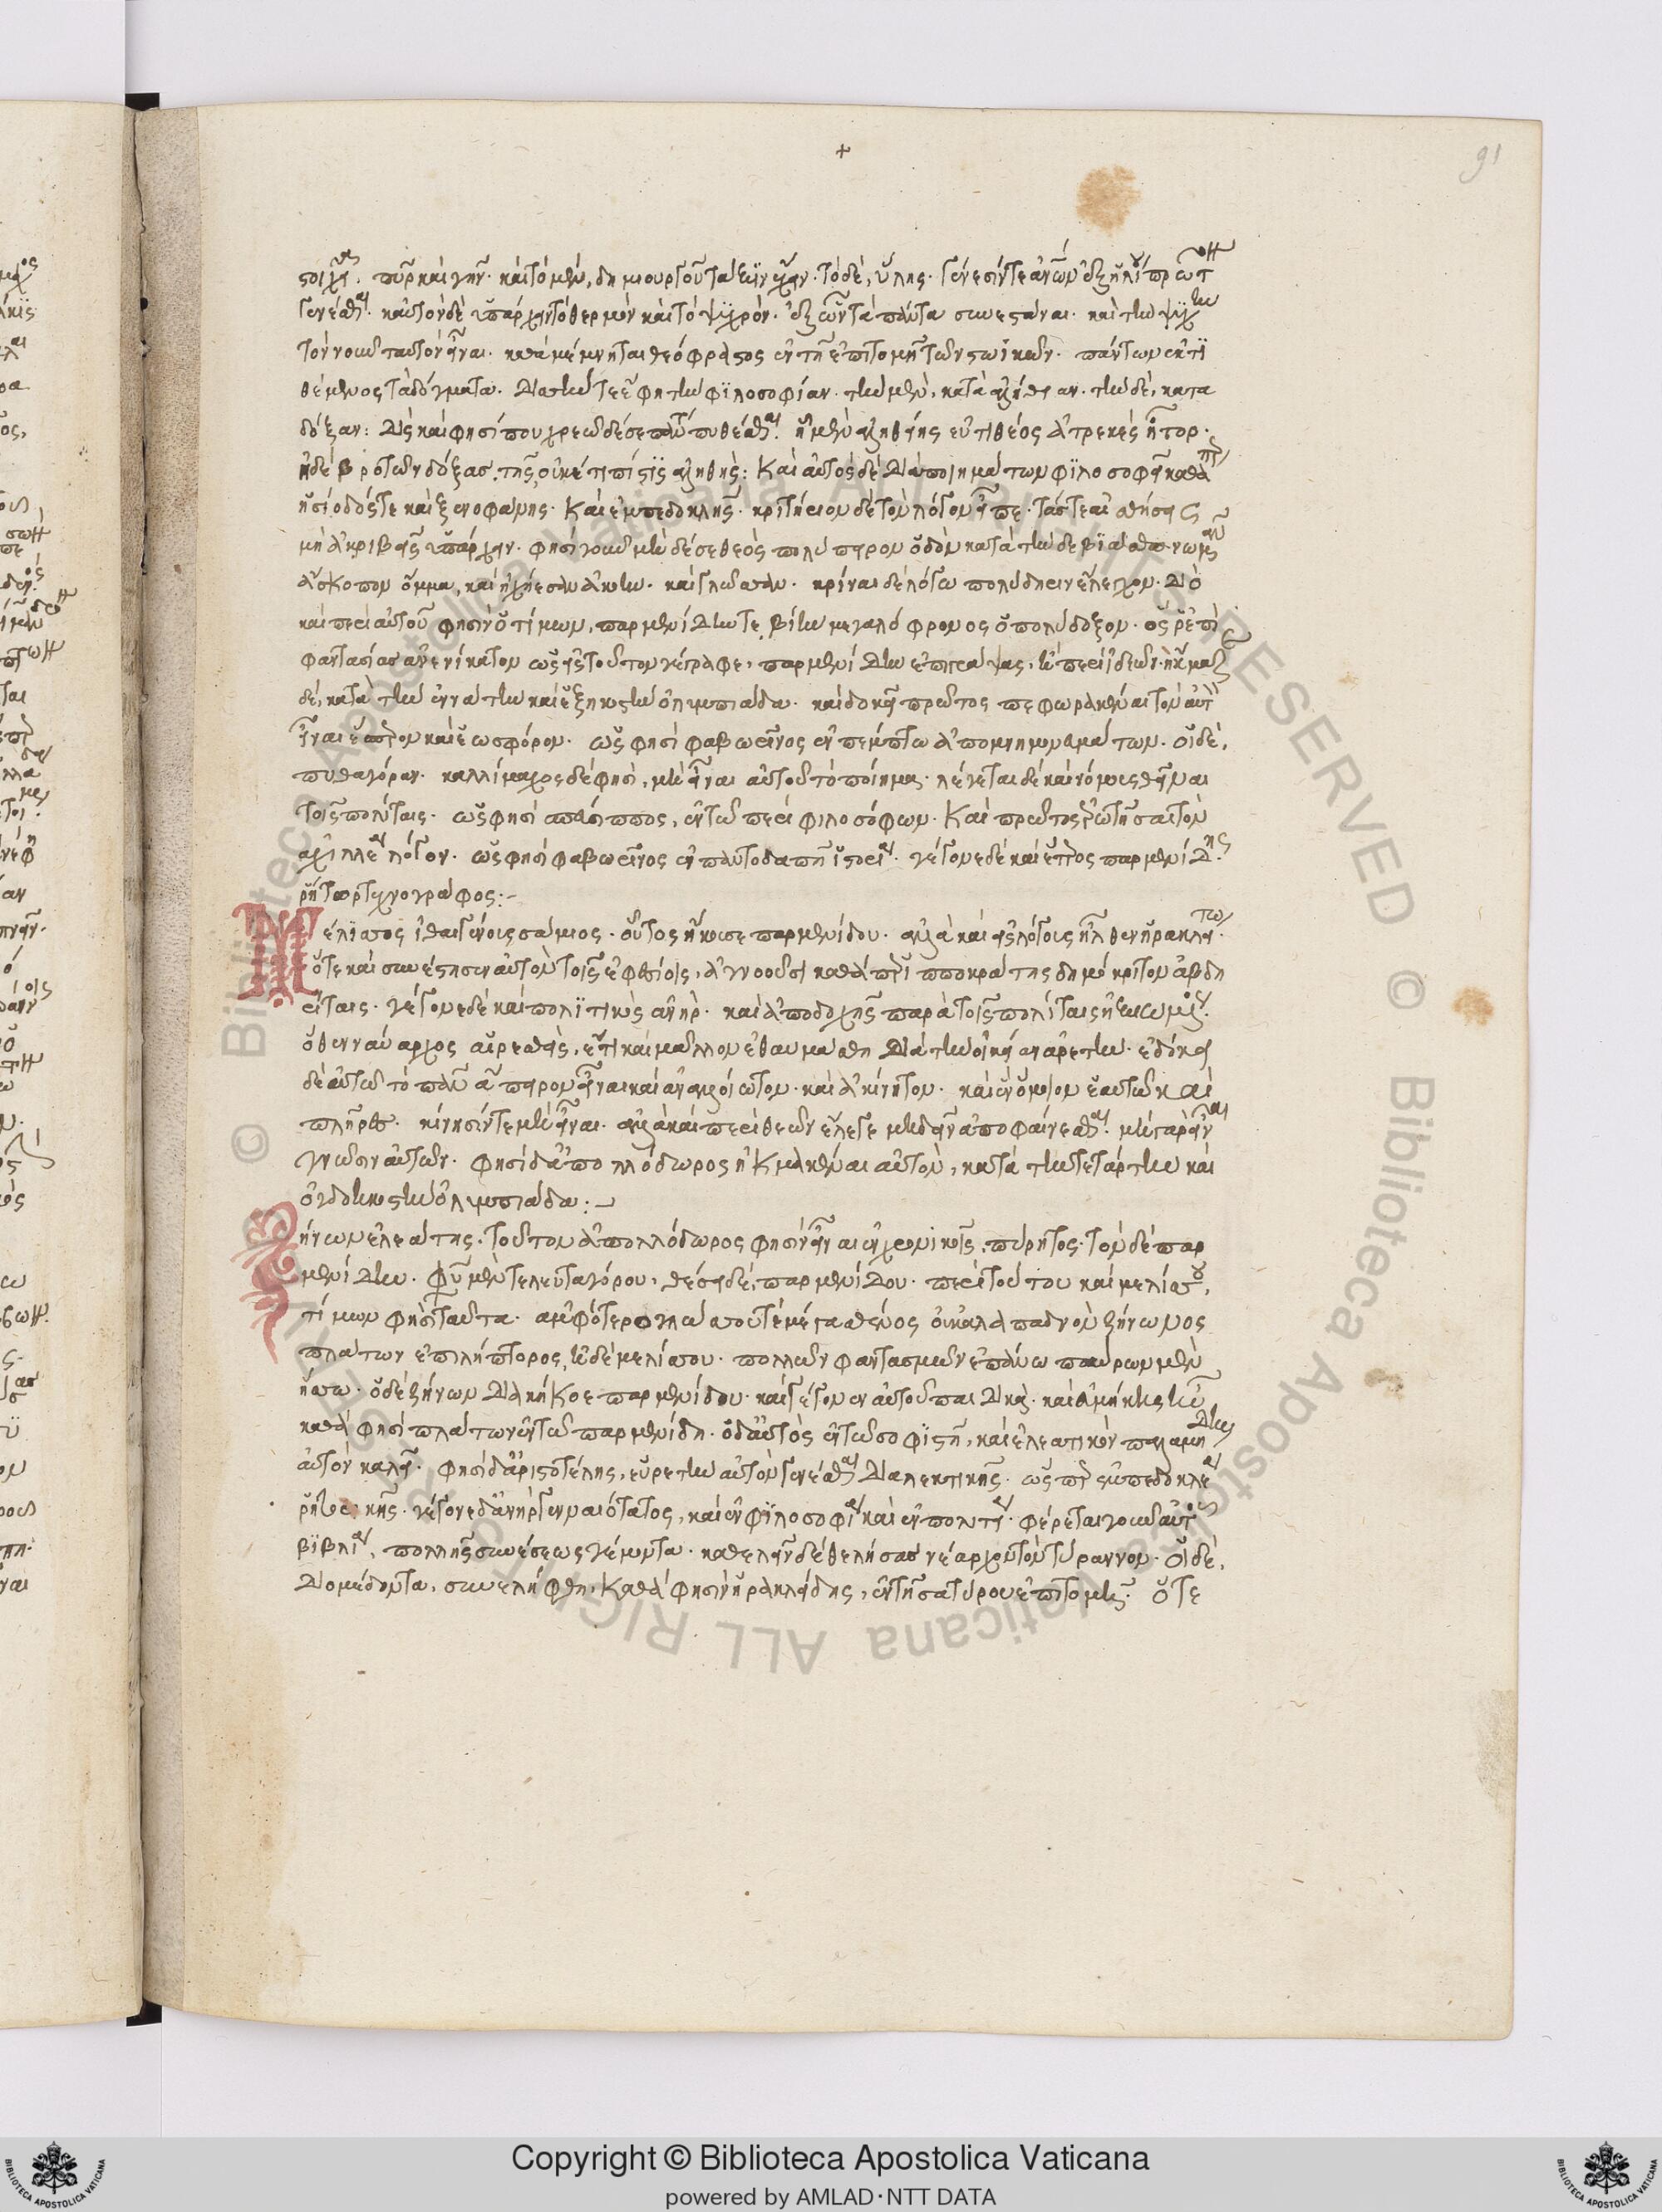 +
91
στοιχεῖα, πῦρ καὶ γῆν· καὶ τὸ μὲν, δημιουργοῦ τάξιν ἔχειν· τὸ δὲ, ὕλης· γένεσίν τε ἀνθρώπων ἐξ ἡλίου πρῶτον
γενέσθαι· καὶ αὐτὸν δὲ ὑπάρχειν τὸ θερμὸν καὶ τὸ ψυχρόν· ἐξ ὧν τὰ πάντα συνεστάναι· καὶ τὴν ψυχὴν
τὸν νοῦν ταυτὸν εἶναι· καθὰ μέμνηται θεόφραστος ἐν τῇ ἐπιτομῇ τῶν στωϊκῶν· πάντων ἐκτι
θέμενος τὰ δόγματα· δισσήν τε ἔφη τὴν φιλοσοφίαν· τὴν μὲν, κατὰ ἀλήθειαν· τὴν δὲ, κατὰ
δόξαν: διὸ καί φησί που χρεὼ δέ σε πάντα πυθέσθαι· ἠμὲν ἀληθείης εὐπιθέος ἀτρεκὲς ἦτορ·
ἠδὲ βροτῶν δόξας, τῆς οὐκέτι πίστις ἀληθής: Καὶ αὐτὸς δὲ διὰ ποιημάτων φιλοσοφεῖ καθάπερ
ἡσίοδός τε καὶ ξενοφάνης· Καὶ ἐμπεδοκλῆς· κριτήριον δὲ τὸν λόγον εἶπε· τάς τε αἰσθήσεις
μὴ ἀκριβεῖς ὑπάρχειν· φησὶ γοῦν μὴ δέ σε θεὸς πολύπειρον ὁδὸν κατὰ τήνδε βιάσθω νωμᾶν
ἄσκοπον ὄμμα, καὶ ἠχήεσσαν ἀκουήν· καὶ γλῶσσαν· κρῖναι δὲ λόγω πολύδηριν ἔλεγχον· διὸ
καὶ περὶ αὐτοῦ φησὶν ὁ τίμων, παρμενίδην τε βίην μεγαλόφρονος ὁ πολύδοξον· ὅς ῥ' ἐπὶ
φαντασίας ἀνενείκατο νώσεις τοῦτον γέγραφε, παρμενίδην ἐπιγράψας, ἢ περὶ ἰδεῶν· ἤκμαζε
δὲ, κατὰ τὴν ἐνάτην καὶ ἑξηκοστὴν ὀλυμπιάδα· καὶ δοκεῖ πρῶτος πεφωρακέναι τὸν αὐτὸν
εἶναι ἕσπερον καὶ ἑωσφόρον· ὥς φησι φαβωρῖνος ἐν πέμπτω ἀπομνημονευμάτων· οἱ δὲ,
πυθαγόραν· καλλίμαχος δέ φησι, μὴ εἶναι αὐτοῦ τὸ ποίημα· λέγεται δὲ καὶ νόμους θεῖναι
τοῖς πολίταις· ὥς φησι σπεύσιππος, ἐν τῶ περὶ φιλοσόφων· Καὶ πρῶτος ἐρωτῆσαι τὸν
ἀχιλλέα λόγον· ὥς φησι φαβωρῖνος ἐν παντοδαπῇ ἱστορία· γέγονε δὲ καὶ ἕτερος παρμενίδης
ῥήτωρ τεχνογράφος:-
Μέλισσος ἰθαιγένους σάμιος· οὗτος ἤκουσε παρμενίδου· ἀλλὰ καὶ εἰς λόγους ἦλθεν ἡρακλείτω·
ὅτε καὶ συνέστησεν αὐτὸν τοῖς ἐφεσίοις, ἀγνοοῦσι καθάπερ ἱπποκράτης δημόκριτον ἀβδη
ρίταις· γέγονε δὲ καὶ πολιτικὸς ἀνήρ· καὶ ἀποδοχῆς παρὰ τοῖς πολίταις ἠξιωμένος·
ὅθεν ναύαρχος αἱρεθεὶς, ἔτι καὶ μᾶλλον ἐθαυμάσθη διὰ τὴν οἰκείαν ἀρετήν· ἐδόκει
δὲ αὐτῶ τὸ πᾶν ἄπειρον εἶναι καὶ ἀναλλοίωτον· καὶ ἀκίνητον· καὶ ἓν ὅμοιον ἑαυτῶ καὶ
πλῆρες· κίνησίν τε μὴ εἶναι· ἀλλὰ καὶ περὶ θεῶν ἔλεγε μὴ δεῖν ἀποφαίνεσθαι· μὴ γὰρ εἶναι
γνῶσιν αὐτῶν· φησὶ δ' ἀπολλόδωρος ἠκμακέναι αὐτὸν, κατὰ τὴν τετάρτην καὶ
ὀγδοηκοστὴν ὀλυμπιάδα:-
Ζήνων ἐλεάτης· τοῦτον ἀπολλόδωρος φησὶν εἶναι ἐν χρονικοῖς, πύρητος· τὸν δὲ παρ
μενίδην· φύσει μὲν τελευταγόρου, θέσει δὲ, παρμενίδου· περὶ τούτου καὶ μελίσσου,
τίμων φησὶ ταῦτα· ἀμφοτερογλώσσου τε μέγα σθένος οὐκ ἀλαπαδνὸν ζήνωνος
πλάτων ἐπιλήπτορος, ἠδὲ μελίσσου· πολλῶν φαντασμῶν ἐπάνω παύρων μὲν
ἥσσω· ὁ δὲ ζήνων διακήκοε παρμενίδου· καὶ γέγονεν αὐτοῦ παιδικά· καὶ εὐμήκης ἦν
καθά φησι πλάτων ἐν τῶ παρμενίδη· ὁ δ' αὐτὸς ἐν τῶ σοφιστῇ, καὶ ἐλεατικὸν παλαμήδην
αὐτὸν καλεῖ· φησὶ δ' ἀριστοτέλης, εὑρετὴν αὐτὸν γενέσθαι διαλεκτικῆς· ὥσπερ ἐμπεδοκλέα
ῥητορικῆς· γέγονε δ' ἀνὴρ γενναιότατος, καὶ ἐν φιλοσοφία καὶ ἐν πολιτεία· φέρεται γοῦν αὐτοῦ
βιβλία, πολλῆς συνέσεως γέμοντα· καθελεῖν δὲ θελήσας νέαρχον τὸν τύραννον· οἱ δὲ,
διομέδοντα, συνελήφθη, καθά φησιν ἡρακλείδης, ἐν τῇ σατύρου ἐπιτομῇ· ὅτε
Copyright © Biblioteca Apostolica Vaticana
powered by AMLAD·NTT DATA